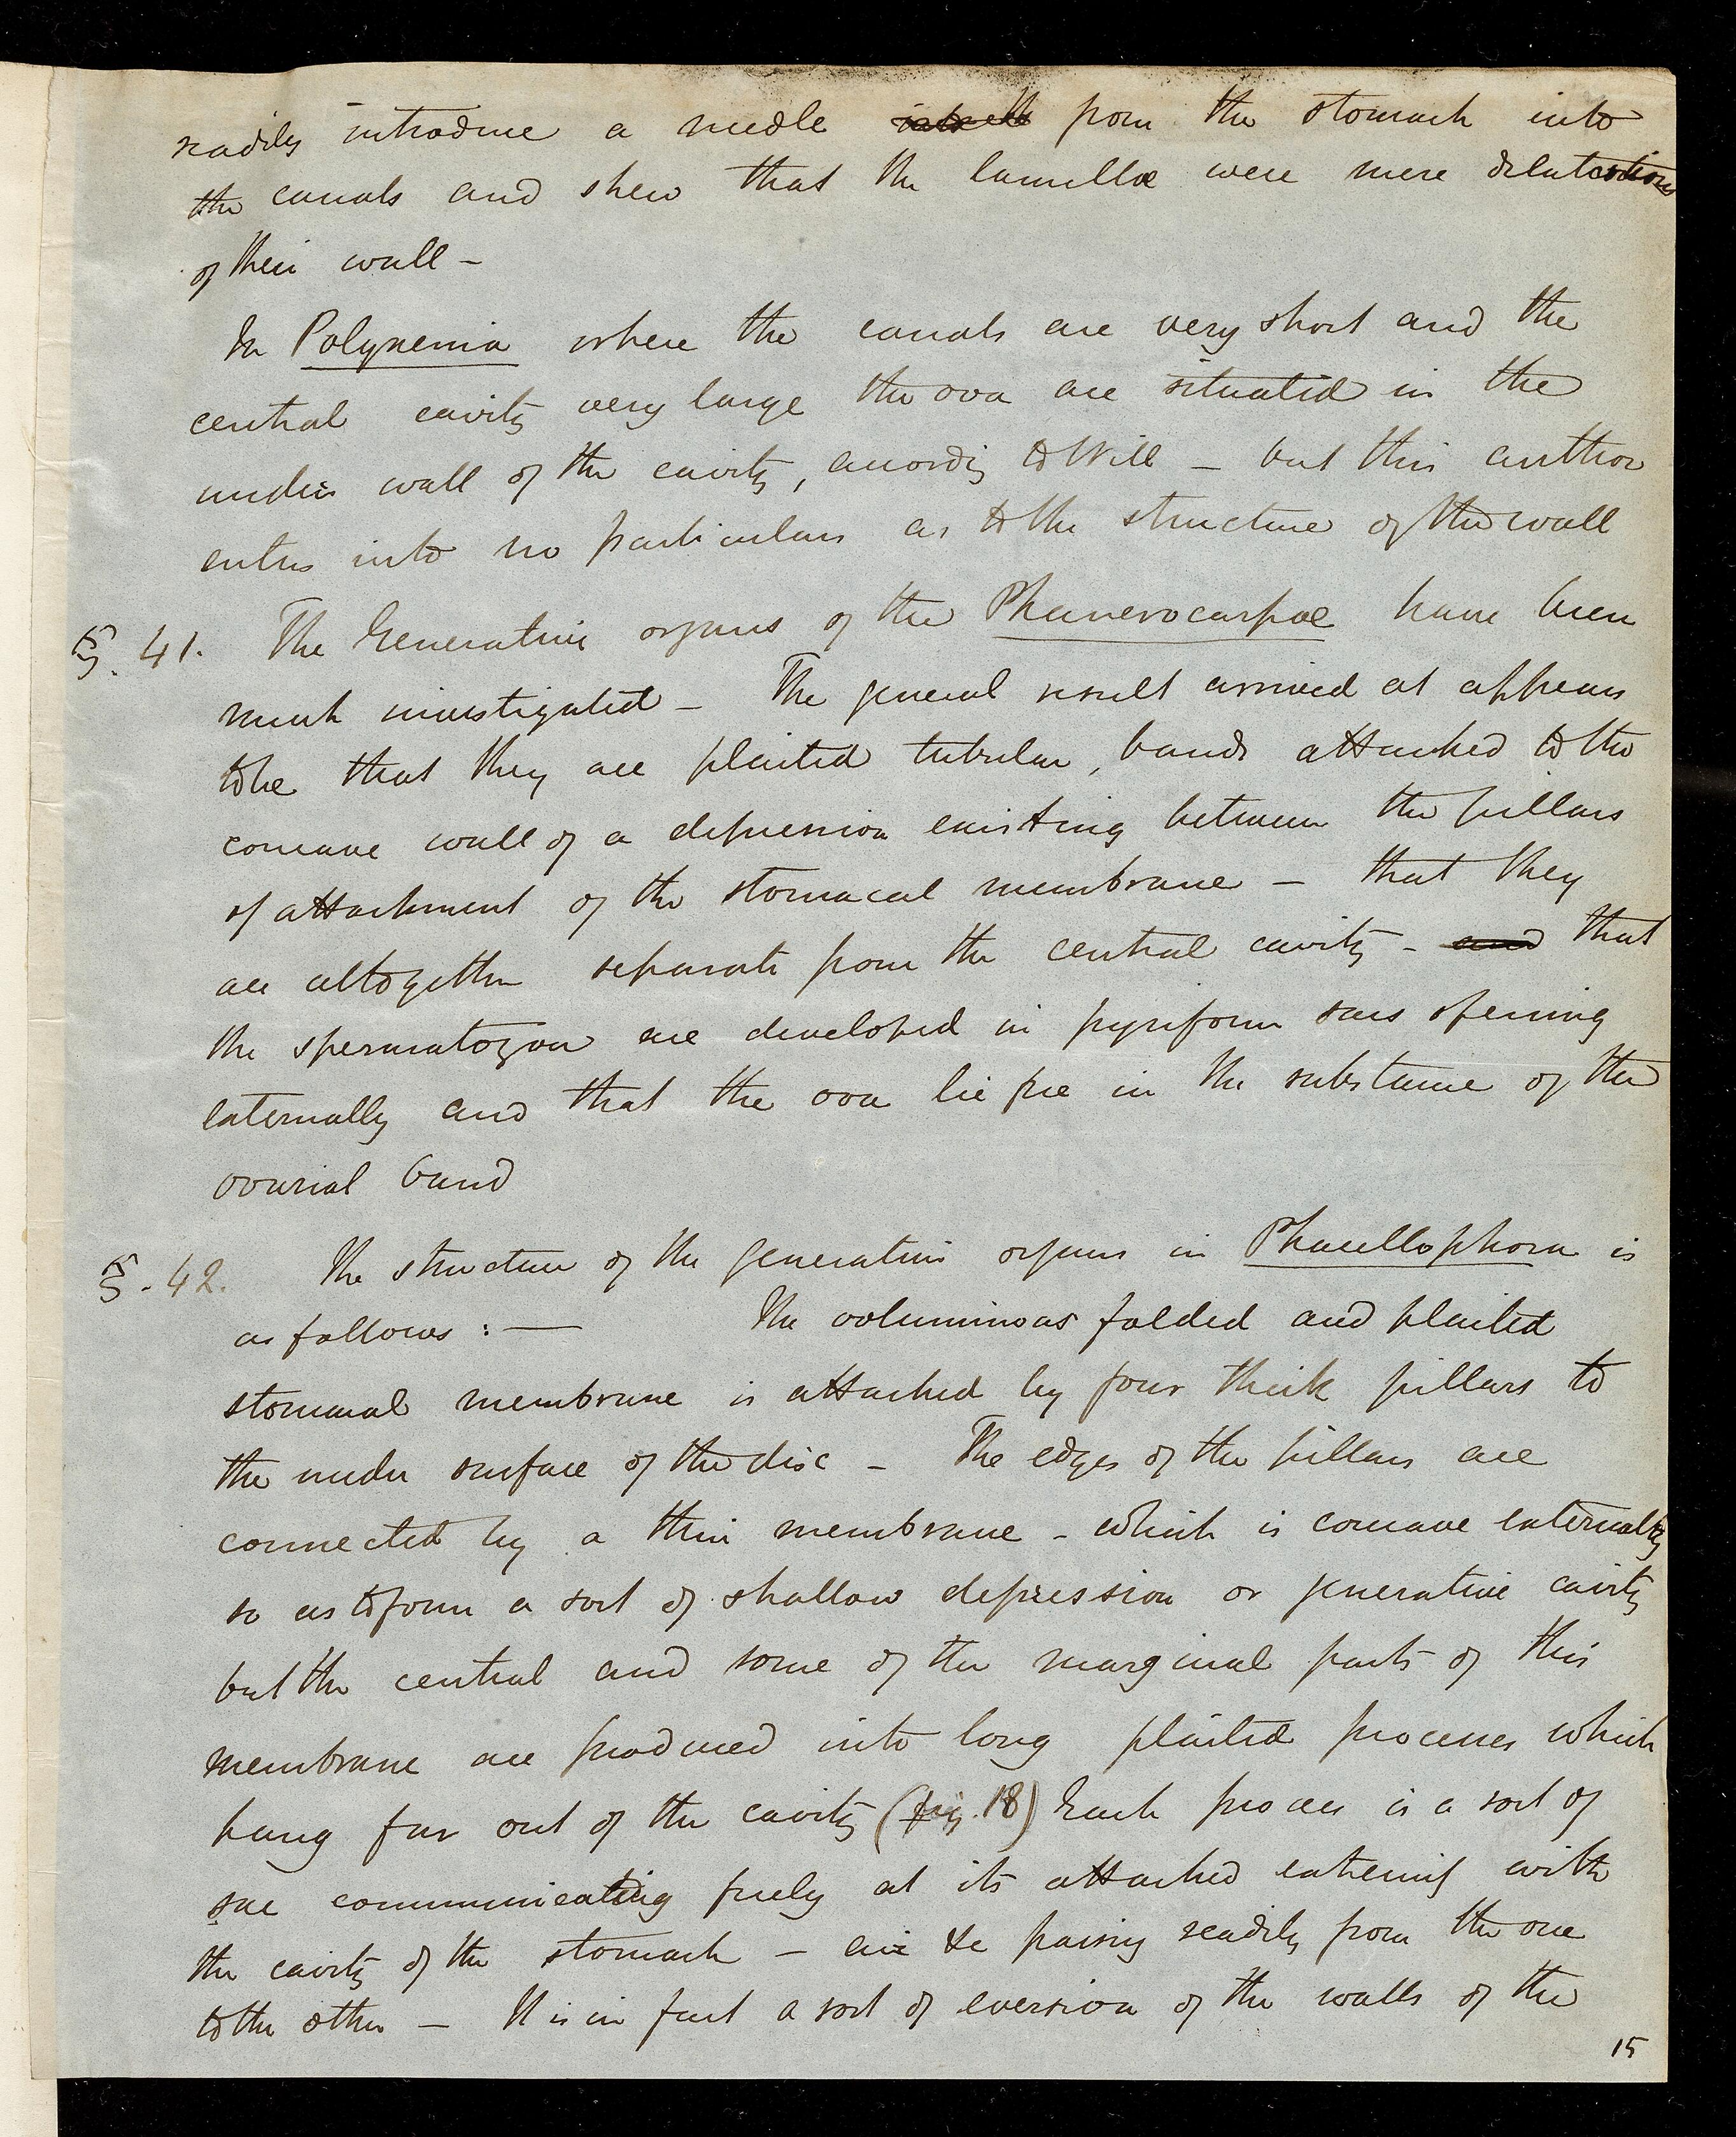 readily introduce a needle from the stomach into
the canals and shew that the lamellæ were mere dilatations
of their wall –
In Polyxenia where the canals are very short and the
central cavity very large the ova are situated in the
under wall of the cavity, according to Will – but this author
enters into no particulars as to the structure of the wall
§. 41. The Generative organs of the Phanerocarpæ have been
much investigated – The general result arrived at appears
to be that they are plaited tubular, bands attached to the
concave wall of a depression existing between the pillars
of attachment of the stomacal membrane – that they
are altogether separate from the central cavity – and that
the spermatozoa are developed in pyriform sacs opening
externally and that the ova lie free in the substance of the
ovarial band
§. 42. The structure of the generative organs in Phacellophora is
as follows : — The voluminous folded and plaited
stomacal membrane is attached by four thick pillars to
the under surface of the disc – The edges of the pillars are
connected by a thin membrane – which is concave externally
so as to form a sort of shallow depression or generative cavity
but the central and some of the marginal parts of this
membrane are produced into long plaited processes which
hang far out of the cavity (fig. 18) Each process is a sort of
sac communicating freely at its attached extremity with
the cavity of the stomach – air &c passing readily from the one
to the other – It is in fact a sort of eversion of the walls of the
15